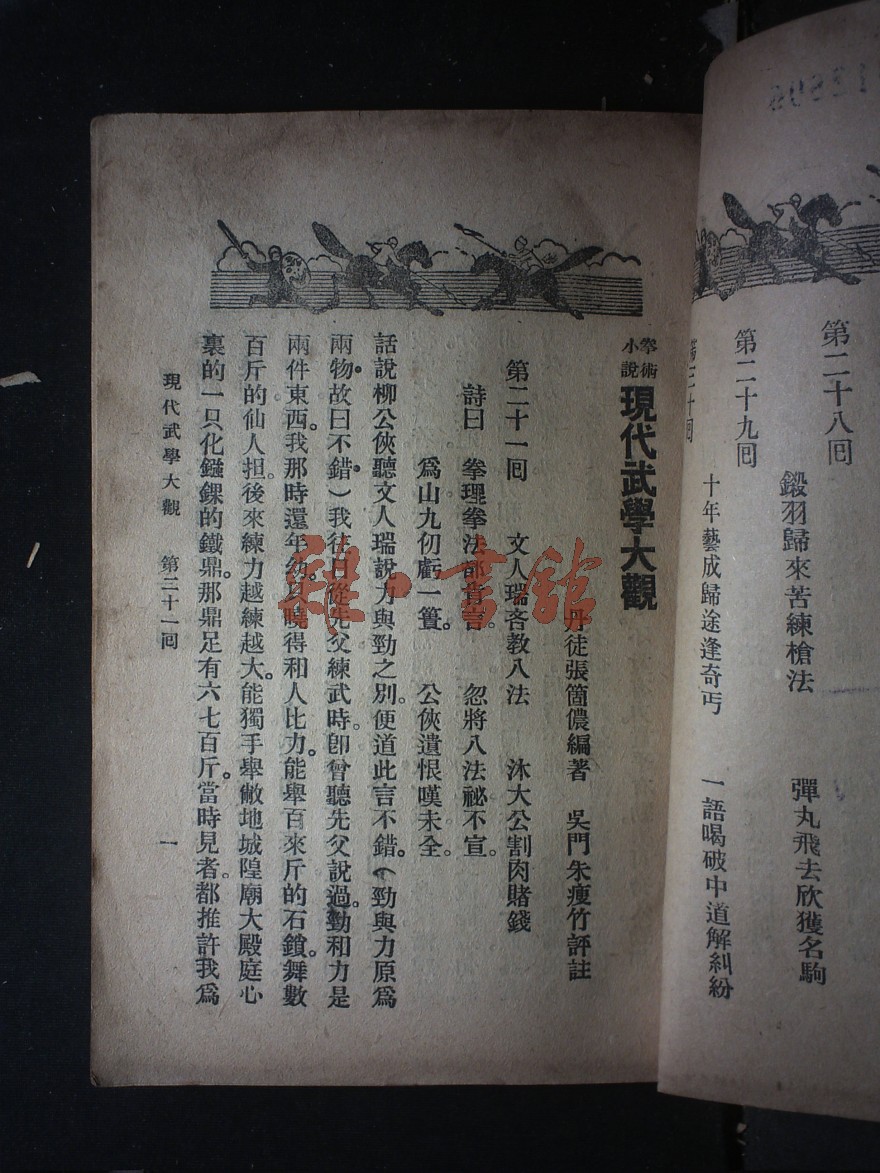 第二十八回 鎩羽歸來苦練槍法 彈丸飛去欣獲名駒
第二十九回 十年藝成歸途逢奇丐 一語喝破中道解糾紛
第三十回
拳術小說 現代武學大觀
丹徒張箇儂編著 吳門朱瘦竹評註
第二十一回 文人瑞吝教八法 沐大公割肉賭錢
詩曰 拳理拳法都言 忽將八法祕不宣。
爲山九仞虧一簣。 公俠遺恨嘆未全。
話說柳公俠聽文人瑞說力與勁之別。便道此言不錯。(勁與力原爲
兩物。故曰不錯)我往日從先父練武時。卽曾聽先父說過。勁和力是
兩件東西。我那時還年幼。曉得和人比力。能舉百來斤的石鎖。舞數
百斤的仙人担。後來練力越練越大。能獨手舉敝地城隍廟大殿庭心
裏的一只化鏹錁的鐵鼎。那鼎足有六七百斤。當時見者。都推許我爲
現代武學大觀 第二十一回 一
雜·書館